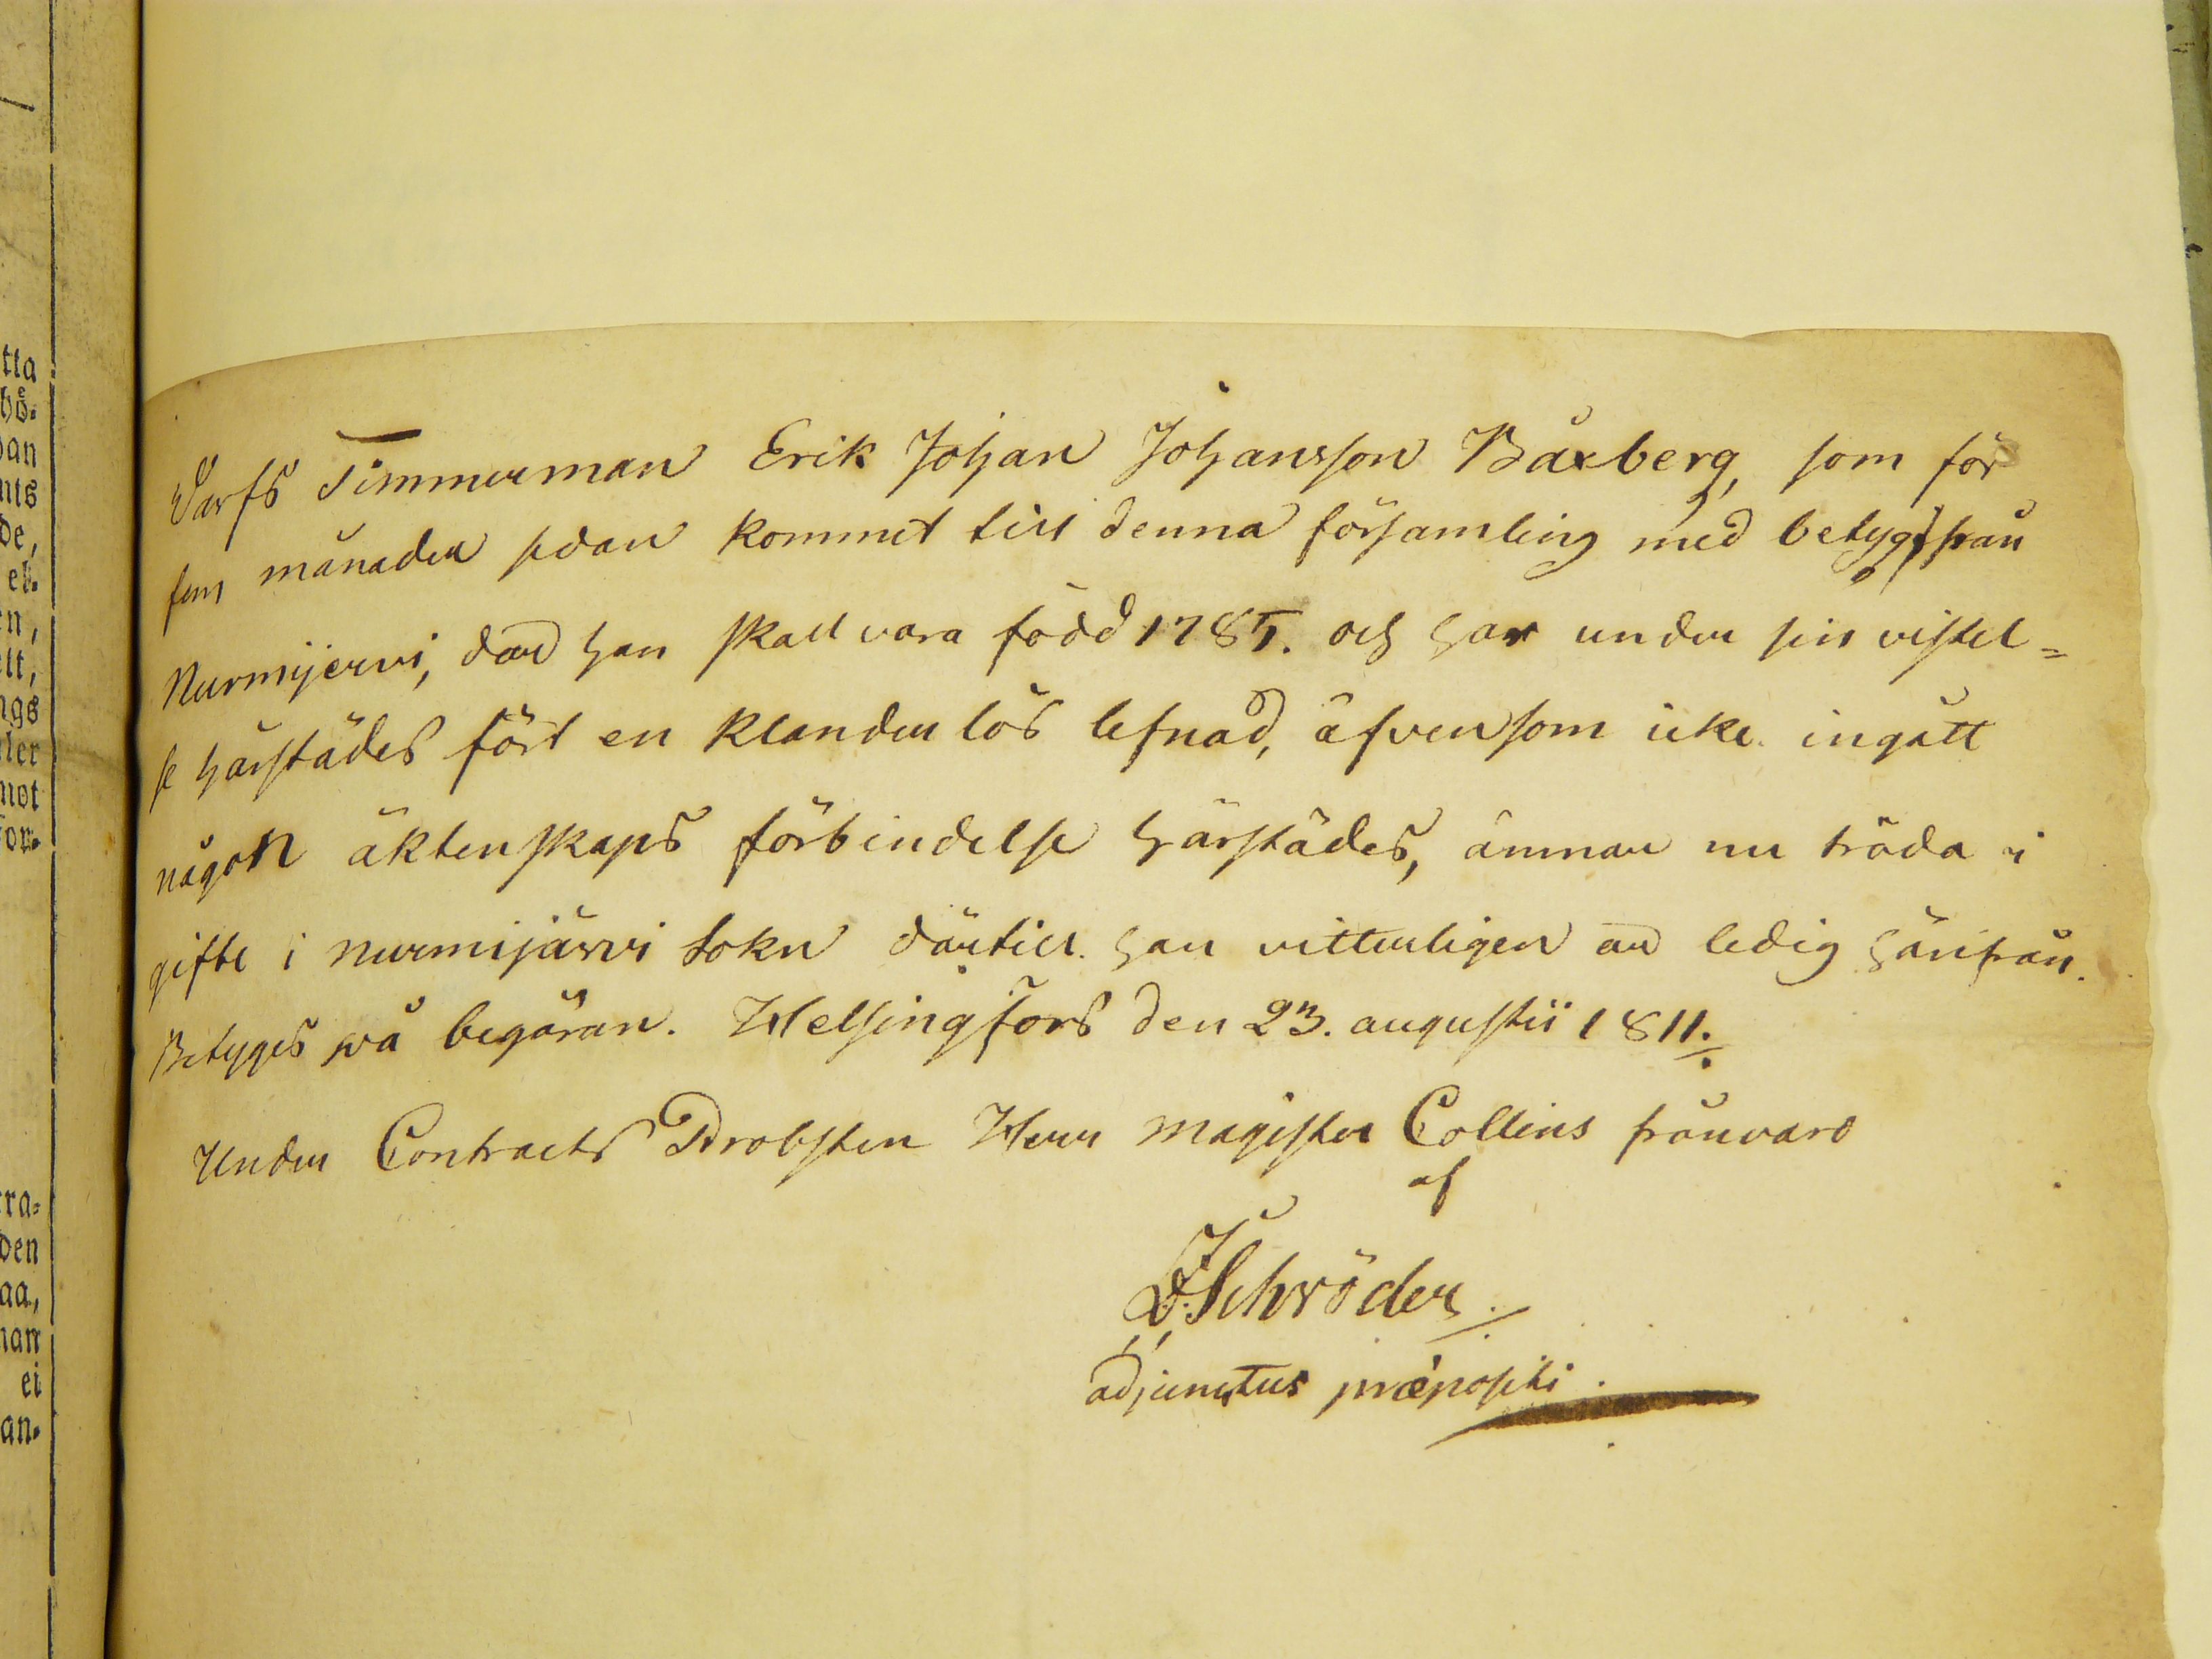 tta
hö-
an
nts
de,
el-
en,
ett,
ngs
ler
mot
for-
Varfs Timmerman Erik Johan Johansson Båxberg, som för
fem månader sedan kommit till denna församling med betyg från
Nurmijervi, där han skall vara född 1785. och har under sin vistel=
se härstädes fört en klanderlös lefnad, äfvensom icke ingått
någon äktenskaps förbindelse härstädes, ämnar nu träda i
gifte i Nurmijärvi Sokn därtill han vitterligen är ledig härifrån.
Betyges på begäran. Helsingfors den 23. augustii 1811.
Under Contracts Probsten Herr Magister Collins frånvaro
af
Schröder
adjunctus præpositi.
ra-
den
aa,
nan
ei
an-